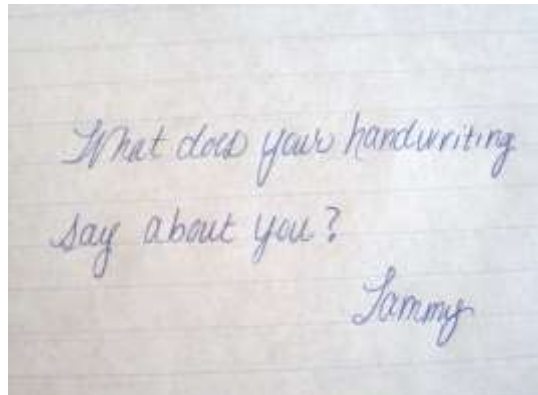 What does your handwriting
say about you?
Tammy